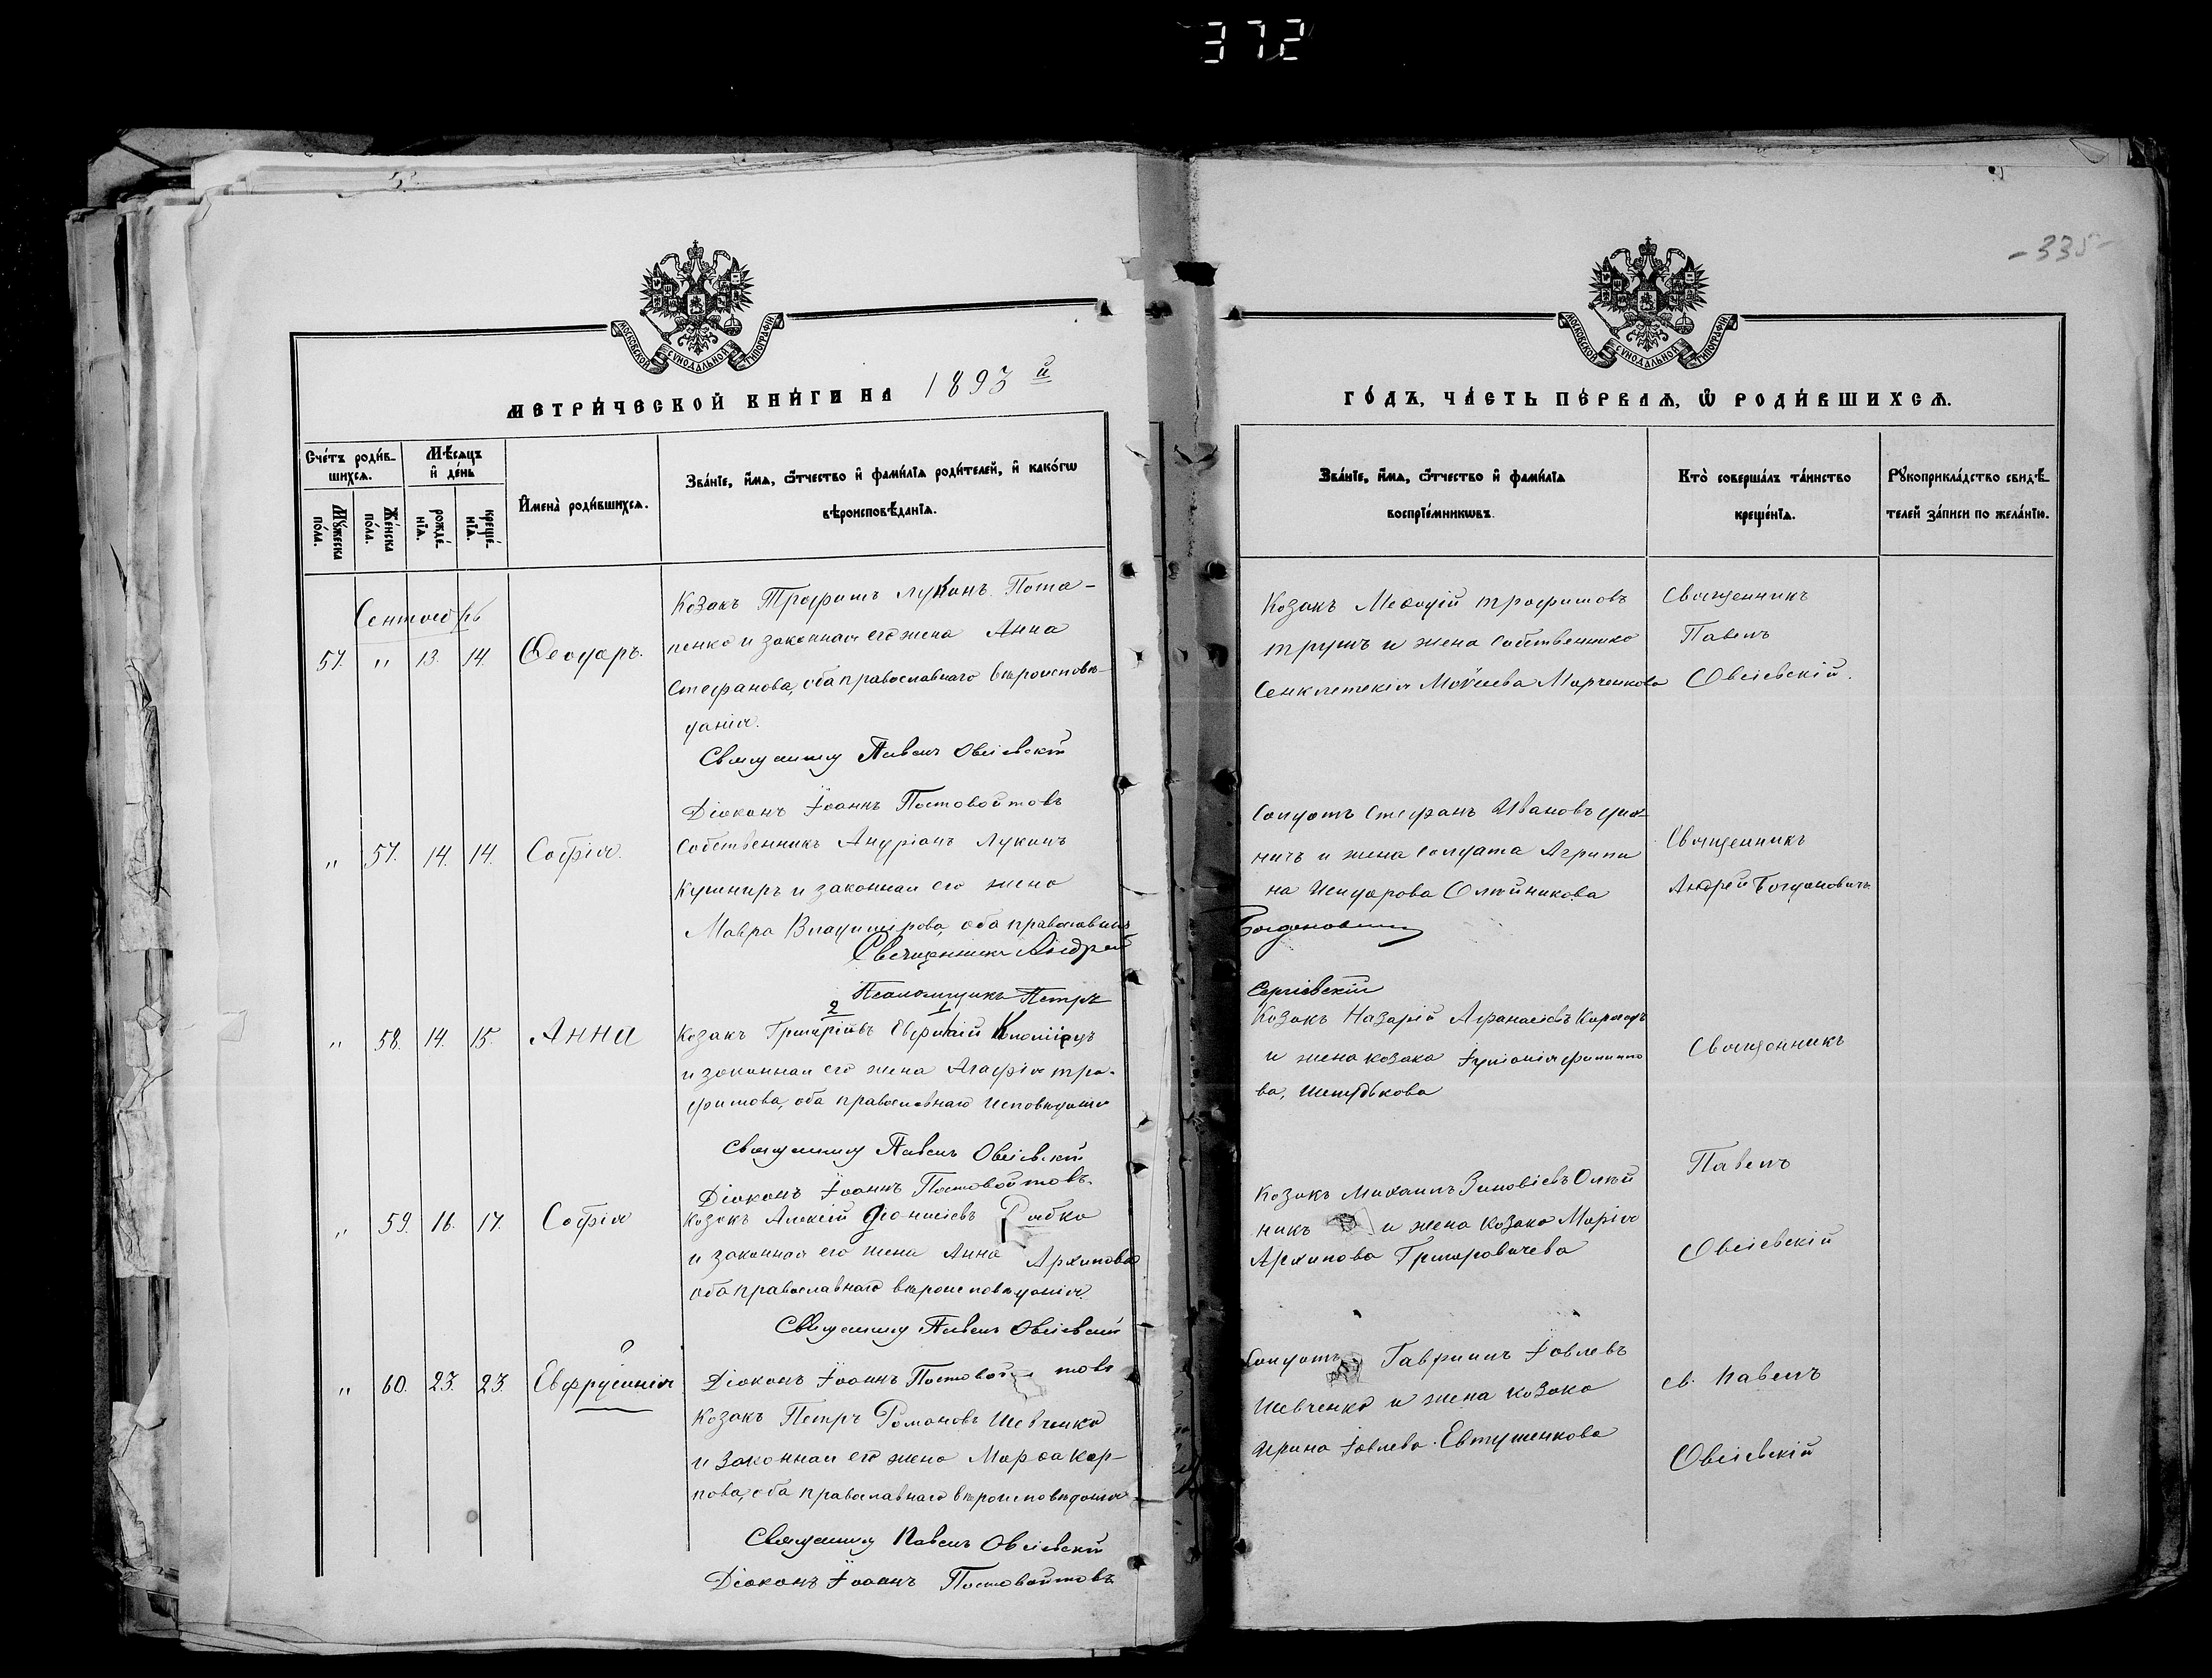 372
-335-
МОСКОВСКОЙ СѴНОДАЛЬНОЙ ТИПОГРАФІИ
МЕТРИ́ЧЕСКОЙ КНИ́ГИ НА 1893 й
Сче́тъ роди́в-
шихсѧ.
Мѣ́сѧцъ
и҆ де́нь
Мꙋ́жеска
по́ла.
Же́нска
по́ла.
рожде́-
нїѧ.
креще́-
нїѧ.
И҆мена̀ роди́вшихсѧ.
Зва́нїе, и҆́мѧ, ѻ҆́тчество и҆ фами́лїѧ роди́телей, и҆ како́гѡ
вѣроисповѣ́данїѧ.
Сентябрь
57. " 13. 14. Ѳеодоръ.
Козакъ Трофимъ Лукинъ Пота-
пенко и законная его жена Анна
Стефанова, оба православнаго вѣроисповѣ-
данія.
Священникъ Павелъ Овсіевскій
Діаконъ Іоаннъ Постовойтовъ
" 57. 14. 14. Софія.
Собственникъ Андріанъ Лукинъ
Кушниръ и законная его жена
Мавра Владимірова, оба православныя
Священникъ Андрей
Псаломщикъ Петръ
2 1
" 58. 14. 15. Анна
Козакъ Григоріевъ Евфимій Коломіецъ
и законная его жена Агафія Тро-
фимова, оба православнаго исповѣданія
Священникъ Павелъ Овсіевскій
Діаконъ Іоаннъ Постовойтовъ.
" 59. 16. 17. Софія
Козакъ Алексій Діонисіевъ Рабко
и законная его жена Анна Архипова
оба православнаго вѣроисповѣданія.
Священникъ Павелъ Овсіевскій
" 60. 23. 23. Евфрусинія
о
Діаконъ Іоаннъ Постовойтовъ
Козакъ Петръ Романовъ Шевченко
и законная его жена Марѳа Кар-
пова, оба православнаго вѣроисповѣданія
Священникъ Павелъ Овсіевскій
Діаконъ Іоаннъ Постовойтовъ
МОСКОВСКОЙ СѴНОДАЛЬНОЙ ТИПОГРАФІИ
ГО́ДЪ, ЧА́СТЬ ПЕ́РВАѦ, Ѽ РОДИ́ВШИХСѦ.
Зва́нїе, и҆́мѧ, ѻ҆́тчество и҆ фами́лїѧ
воспрїе́мникѡвъ.
Кто̀ соверша́лъ та́инство
креще́нїѧ.
Рꙋкоприкла́дство свидѣ́-
телей за́писи по жела́нїю.
Козакъ Меѳодій Трофимовъ
Трушъ и жена собственника
Сенклетекія Моѵсеева Марченкова
Священникъ
Павелъ
Овсіевскій.
Солдатъ Стефанъ Ивановъ
и жена солдата Агрипи
на Исидорова Олѣйникова
Богдановичъ
Священникъ
Андрей Богдановичъ
Сергіевскій
Козакъ Назарій Афанасіевъ
и жена козака Іуліанія Филиппо
ва,
Священникъ
Козакъ Михаилъ Зиновіевъ Олѣй
никъ и жена козака Марія
Архипова Григоровичева
Павелъ
Овсіевскій
Солдатъ Гавриилъ Іовлевъ
Шевченко и жена козака
Ирина Іовлева Евтушенкова
св. Павелъ
Овсіевскій